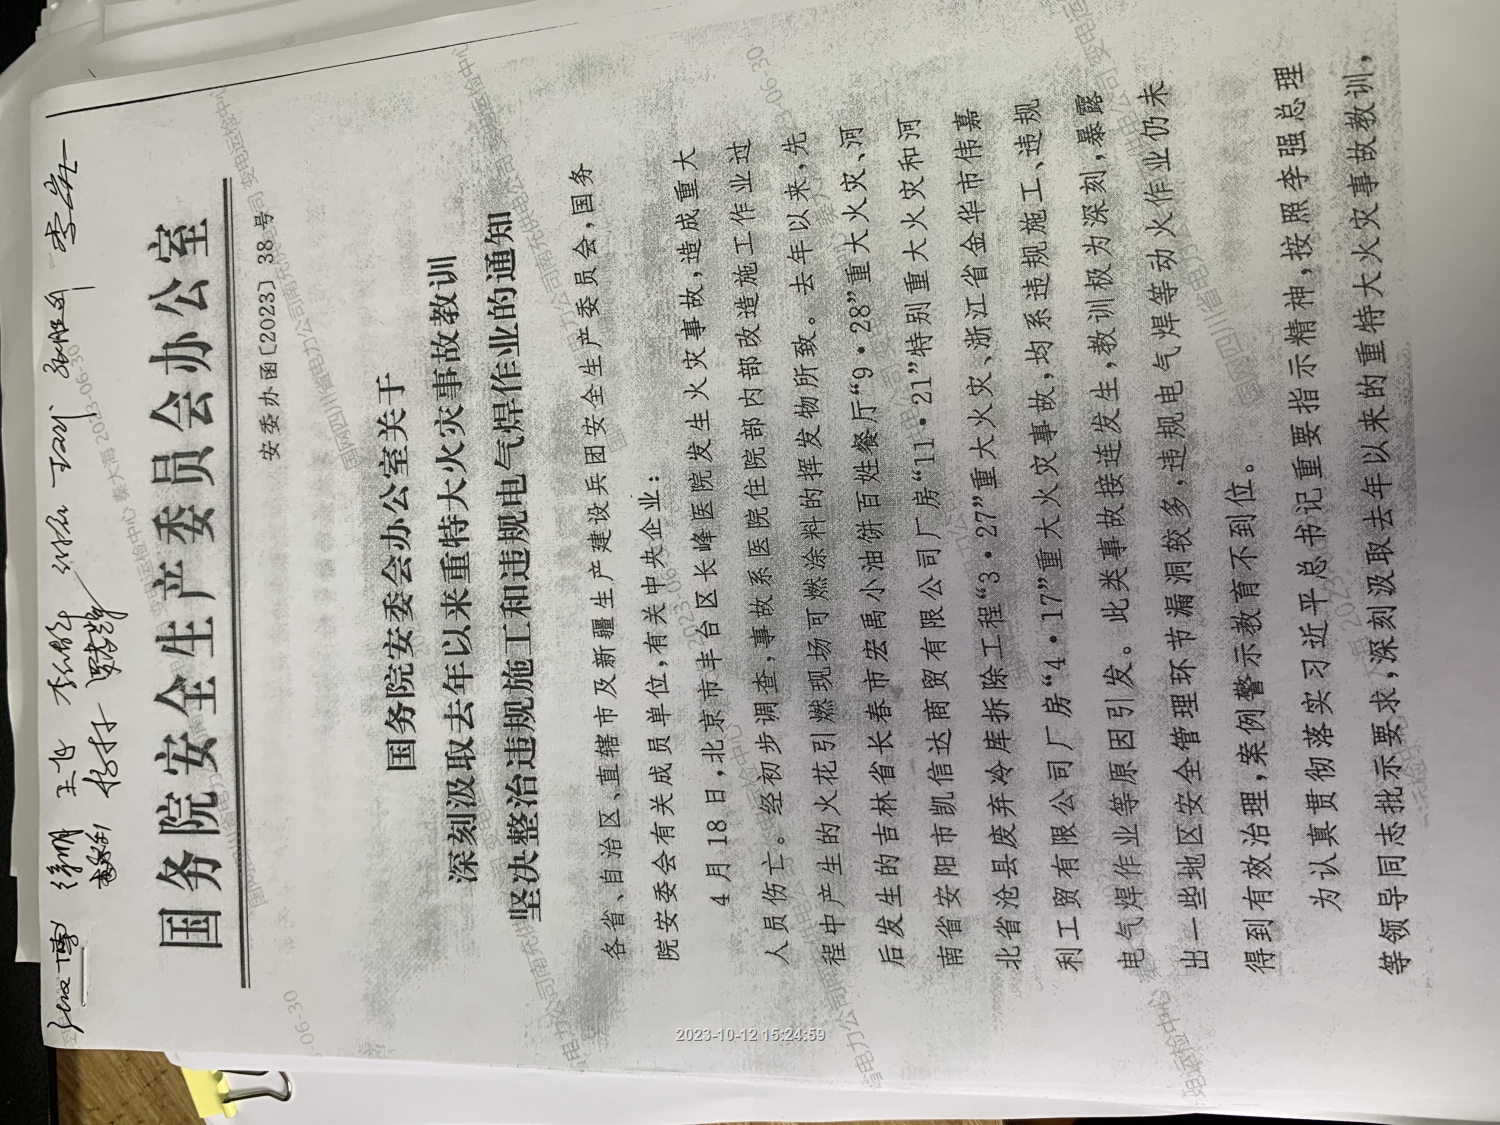 徐明 王飞
国务院安全生产委员会办公室
安委办函〔2023〕38号
国务院安委会办公室关于
深刻汲取去年以来重特大火灾事故教训
坚决整治违规施工和违规电气焊作业的通知
各省、自治区、直辖市及新疆生产建设兵团安全生产委员会,国务
院安委会有关成员单位,有关中央企业:
4月18日,北京市丰台区长峰医院发生火灾事故,造成重大
人员伤亡。经初步调查,事故系医院住院部内部改造施工作业过
程中产生的火花引燃现场可燃涂料的挥发物所致。去年以来,先
后发生的吉林省长春市宏禹小油饼百姓餐厅“9·28”重大火灾、河
南省安阳市凯信达商贸有限公司厂房“11·21”特别重大火灾和河
北省沧县废弃冷库拆除工程“3·27”重大火灾、浙江省金华市伟嘉
利工贸有限公司厂房“4·17”重大火灾事故,均系违规施工、违规
电气焊作业等原因引发。此类事故接连发生,教训极为深刻,暴露
出一些地区安全管理环节漏洞较多,违规电气焊等动火作业仍未
得到有效治理,案例警示教育不到位。
为认真贯彻落实习近平总书记重要指示精神,按照李强总理
等领导同志批示要求,深刻汲取去年以来的重特大火灾事故教训,
2023-10-12 15:24:59